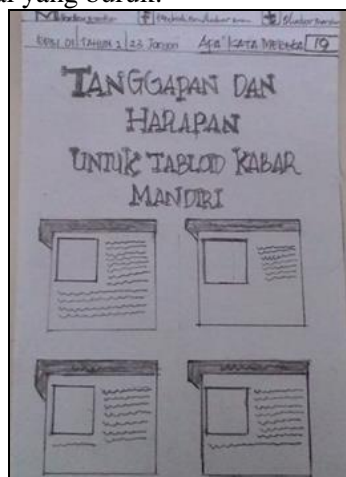 yang buruk.
EDISI 01 | TAHUN 1 | 23 Januari APA KATA MEREKA 19
TANGGAPAN DAN
HARAPAN
UNTUK TABLOID KABAR
MANDIRI